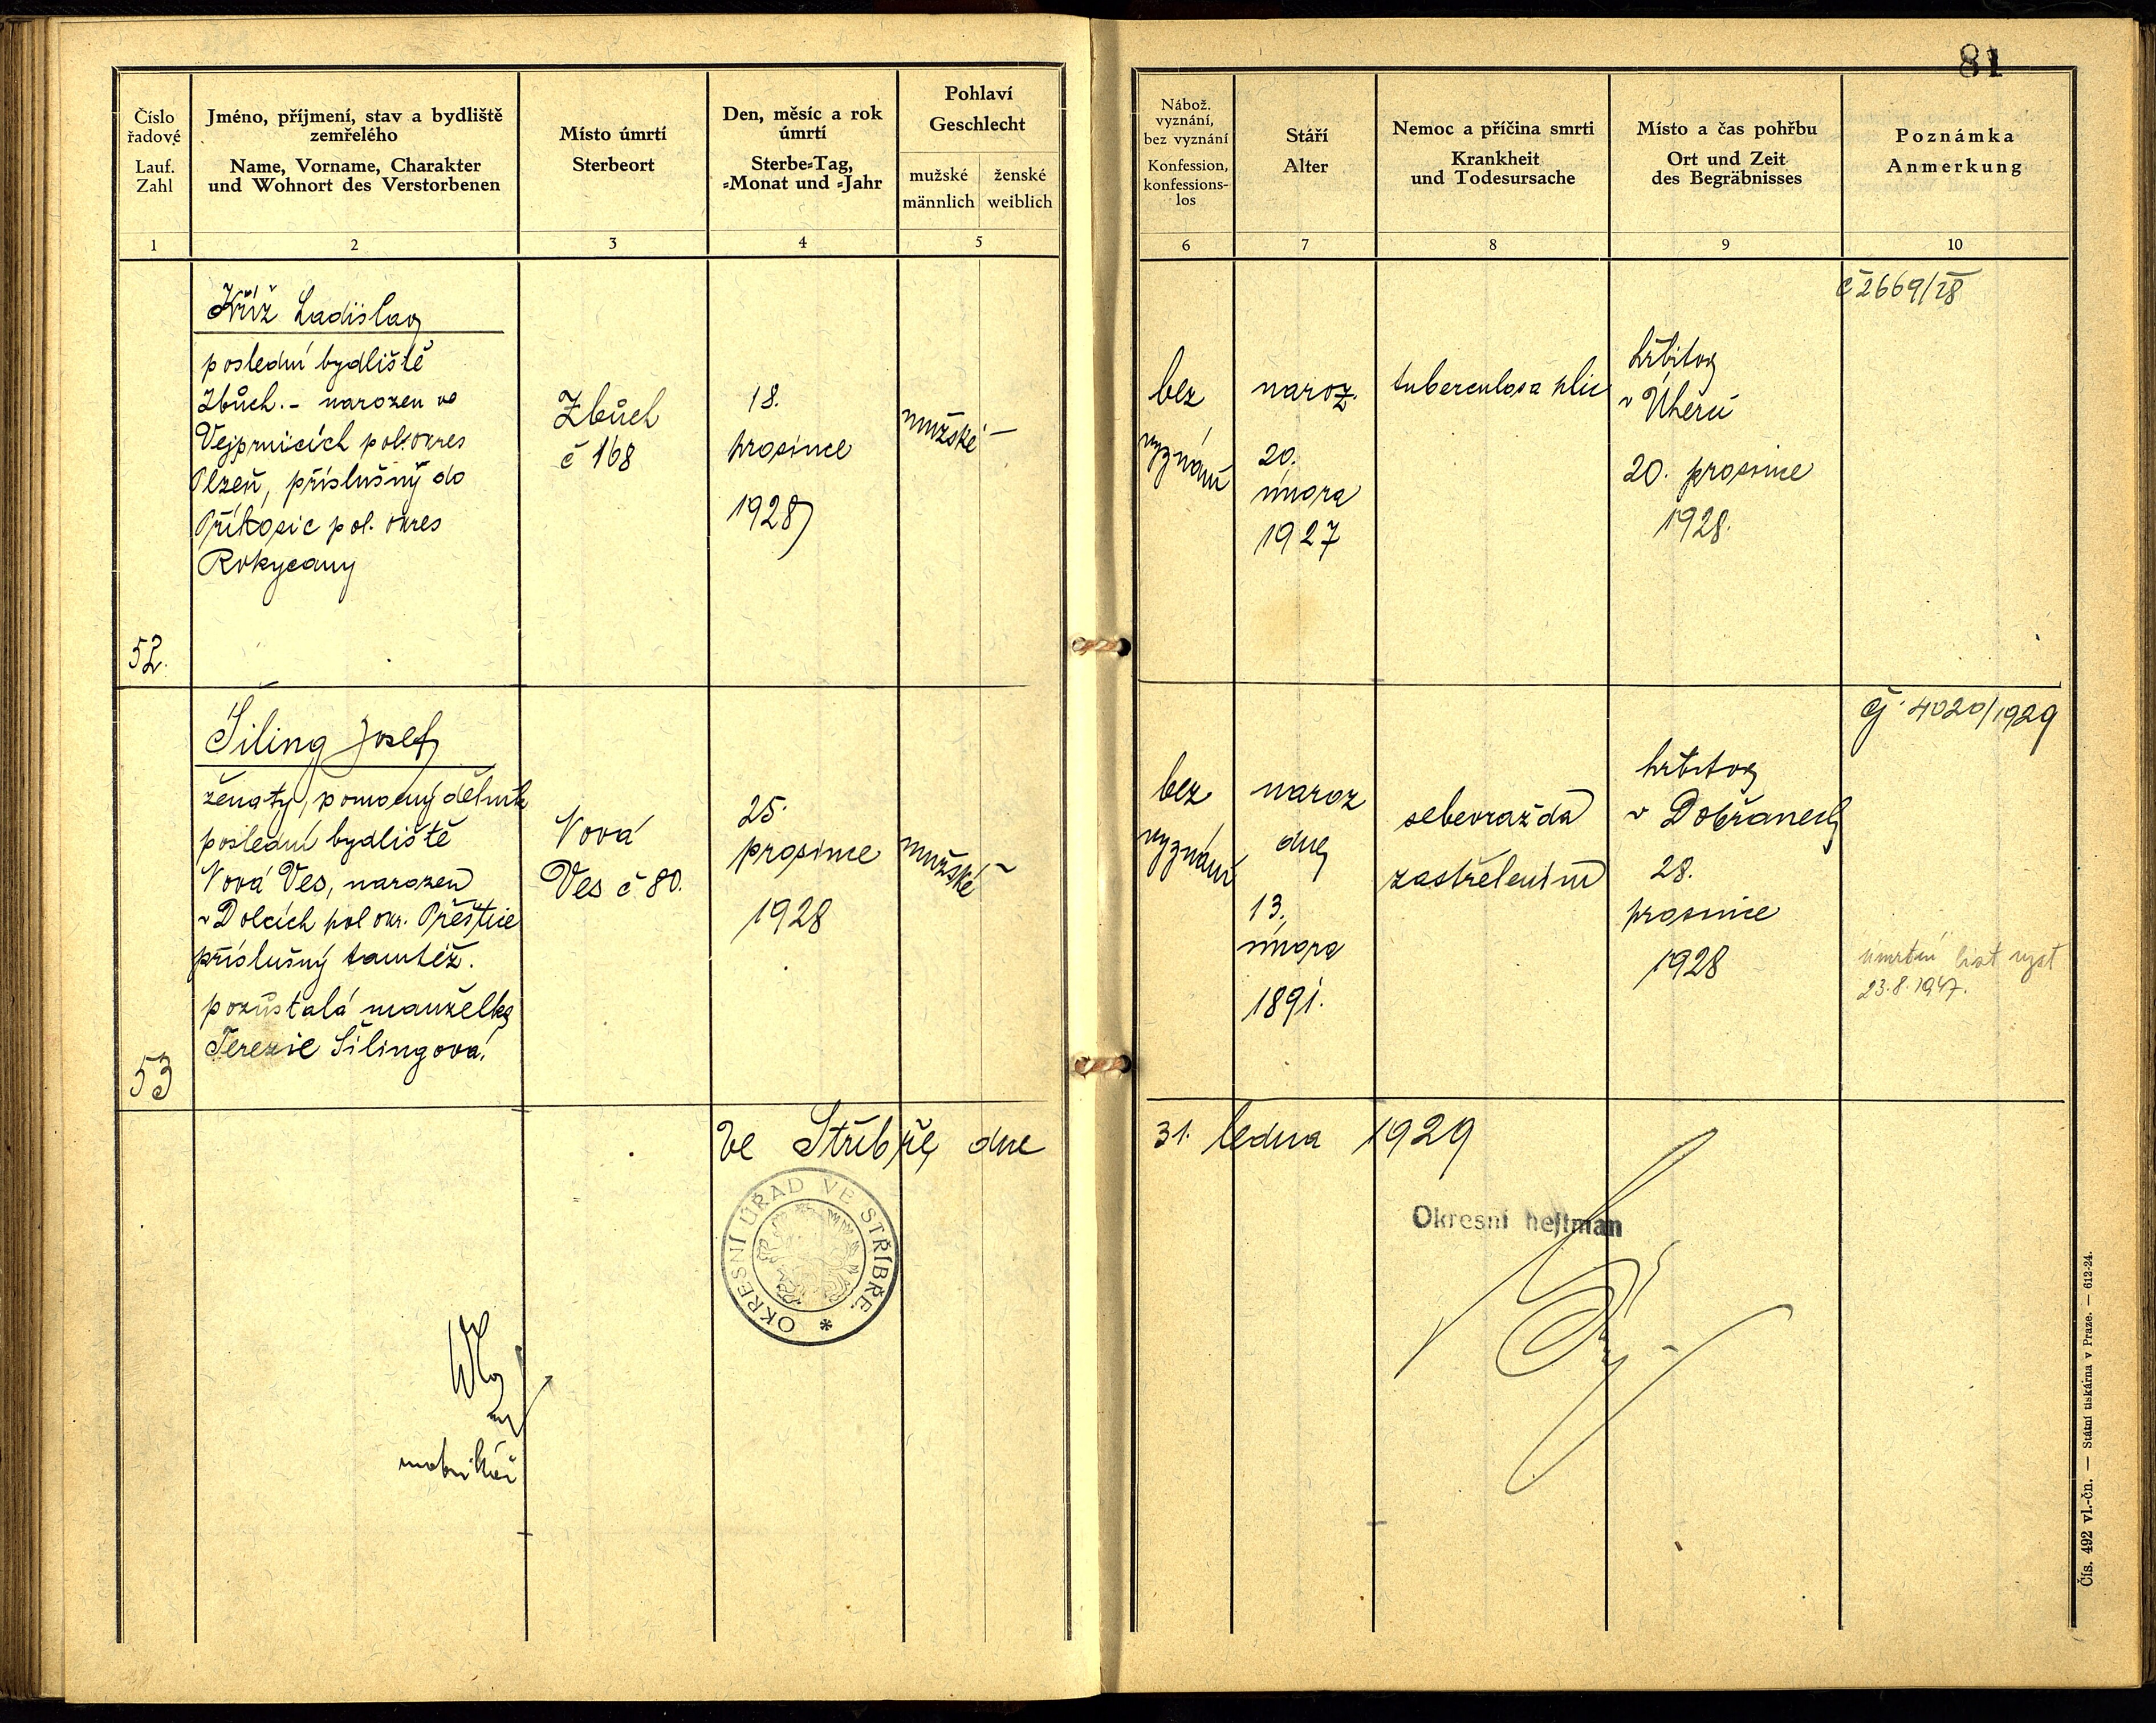 81
Číslo
řadové
Lauf.
Zahl
1
Jméno, příjmení, stav a bydliště
zemřelého
Name, Vorname, Charakter
und Wohnort des Verstorbenen
2
Místo úmrtí
Sterbeort
3
Den, měsíc a rok
úmrtí
Sterbe-Tag,
-Monat und -Jahr
4
Pohlaví
Geschlecht
mužské
männlich
ženské
weiblich
5
Nábož.
vyznání,
bez vyznání
Konfession,
konfessions-
los
6
Stáří
Alter
7
Nemoc a příčina smrti
Krankheit
und Todesursache
8
Místo a čas pohřbu
Ort und Zeit
des Begräbnisses
9
Poznámka
Anmerkung
10
52.
Kříž Ladislav
poslední bydliště
Zbůch.- narozen ve
Vejprnicích pol. okres
Plzeň, příslušný do
Příkosic pol. okres
Rokycany
Zbůch
č 168
18.
prosince
1928
mužské –
bez
vyznání
naroz.
20.
února
1927
tuberculosa plic
hřbitov
v Úherci
20. prosince
1928.
č 2669/28
53
Šiling Josef
ženatý, pomocný dělník
poslední bydliště
Nová Ves, narozen
v Dolcích pol okr. Přeštice
příslušný tamtéž.
pozůstalá manželka
Terezie Šilingová.
Nová
Ves č 80.
25.
prosince
1928
mužské –
bez
vyznání
naroz
dne
13.
února
1891.
sebevražda
zastřelením
hřbitov
v Dobřanech
28.
prosince
1928
čj. 4020/1929
úmrtní list vyst
23.8.1947.
Ve Stříbře, dne 31. ledna 1929
OKRESNÍ ÚŘAD VE STŘÍBŘE *
Okresní hejtman
matrikář
Čís. 492 vl.-čn. — Státní tiskárna v Praze. — 612-24.